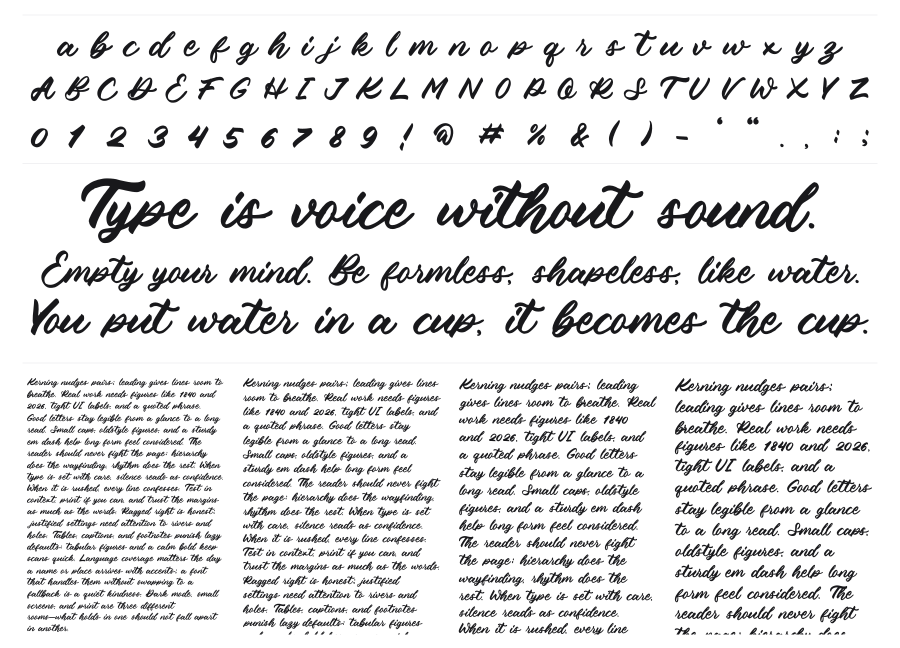 a b c d e f g h i j k l m n o p q r s t u v w x y z
A B C D E F G H I J K L M N O P Q R S T U V W X Y Z
0 1 2 3 4 5 6 7 8 9 ! @ # % & ( ) - ‘ “ . , : ;
Type is voice without sound.
Empty your mind. Be formless, shapeless, like water.
You put water in a cup, it becomes the cup.
Kerning nudges pairs; leading gives lines room to
breathe. Real work needs figures like 1840 and
2026, tight UI labels, and a quoted phrase.
Good letters stay legible from a glance to a long
read. Small caps, oldstyle figures, and a sturdy
em dash help long form feel considered. The
reader should never fight the page: hierarchy
does the wayfinding, rhythm does the rest. When
type is set with care, silence reads as confidence.
When it is rushed, every line confesses. Test in
context, print if you can, and trust the margins
as much as the words. Ragged right is honest;
justified settings need attention to rivers and
holes. Tables, captions, and footnotes punish lazy
defaults: tabular figures and a calm bold keep
scans quick. Language coverage matters the day
a name or place arrives with accents: a font
that handles them without swapping to a
fallback is a quiet kindness. Dark mode, small
screens, and print are three different
rooms—what holds in one should not fall apart
in another.
Kerning nudges pairs; leading gives lines
room to breathe. Real work needs figures
like 1840 and 2026, tight UI labels, and
a quoted phrase. Good letters stay
legible from a glance to a long read.
Small caps, oldstyle figures, and a
sturdy em dash help long form feel
considered. The reader should never fight
the page: hierarchy does the wayfinding,
rhythm does the rest. When type is set
with care, silence reads as confidence.
When it is rushed, every line confesses.
Test in context, print if you can, and
trust the margins as much as the words.
Ragged right is honest; justified
settings need attention to rivers and
holes. Tables, captions, and footnotes
punish lazy defaults: tabular figures
Kerning nudges pairs; leading
gives lines room to breathe. Real
work needs figures like 1840
and 2026, tight UI labels, and
a quoted phrase. Good letters
stay legible from a glance to a
long read. Small caps, oldstyle
figures, and a sturdy em dash
help long form feel considered.
The reader should never fight
the page: hierarchy does the
wayfinding, rhythm does the
rest. When type is set with care,
silence reads as confidence.
When it is rushed, every line
Kerning nudges pairs;
leading gives lines room to
breathe. Real work needs
figures like 1840 and 2026,
tight UI labels, and a
quoted phrase. Good letters
stay legible from a glance
to a long read. Small caps,
oldstyle figures, and a
sturdy em dash help long
form feel considered. The
reader should never fight
the page: hierarchy does